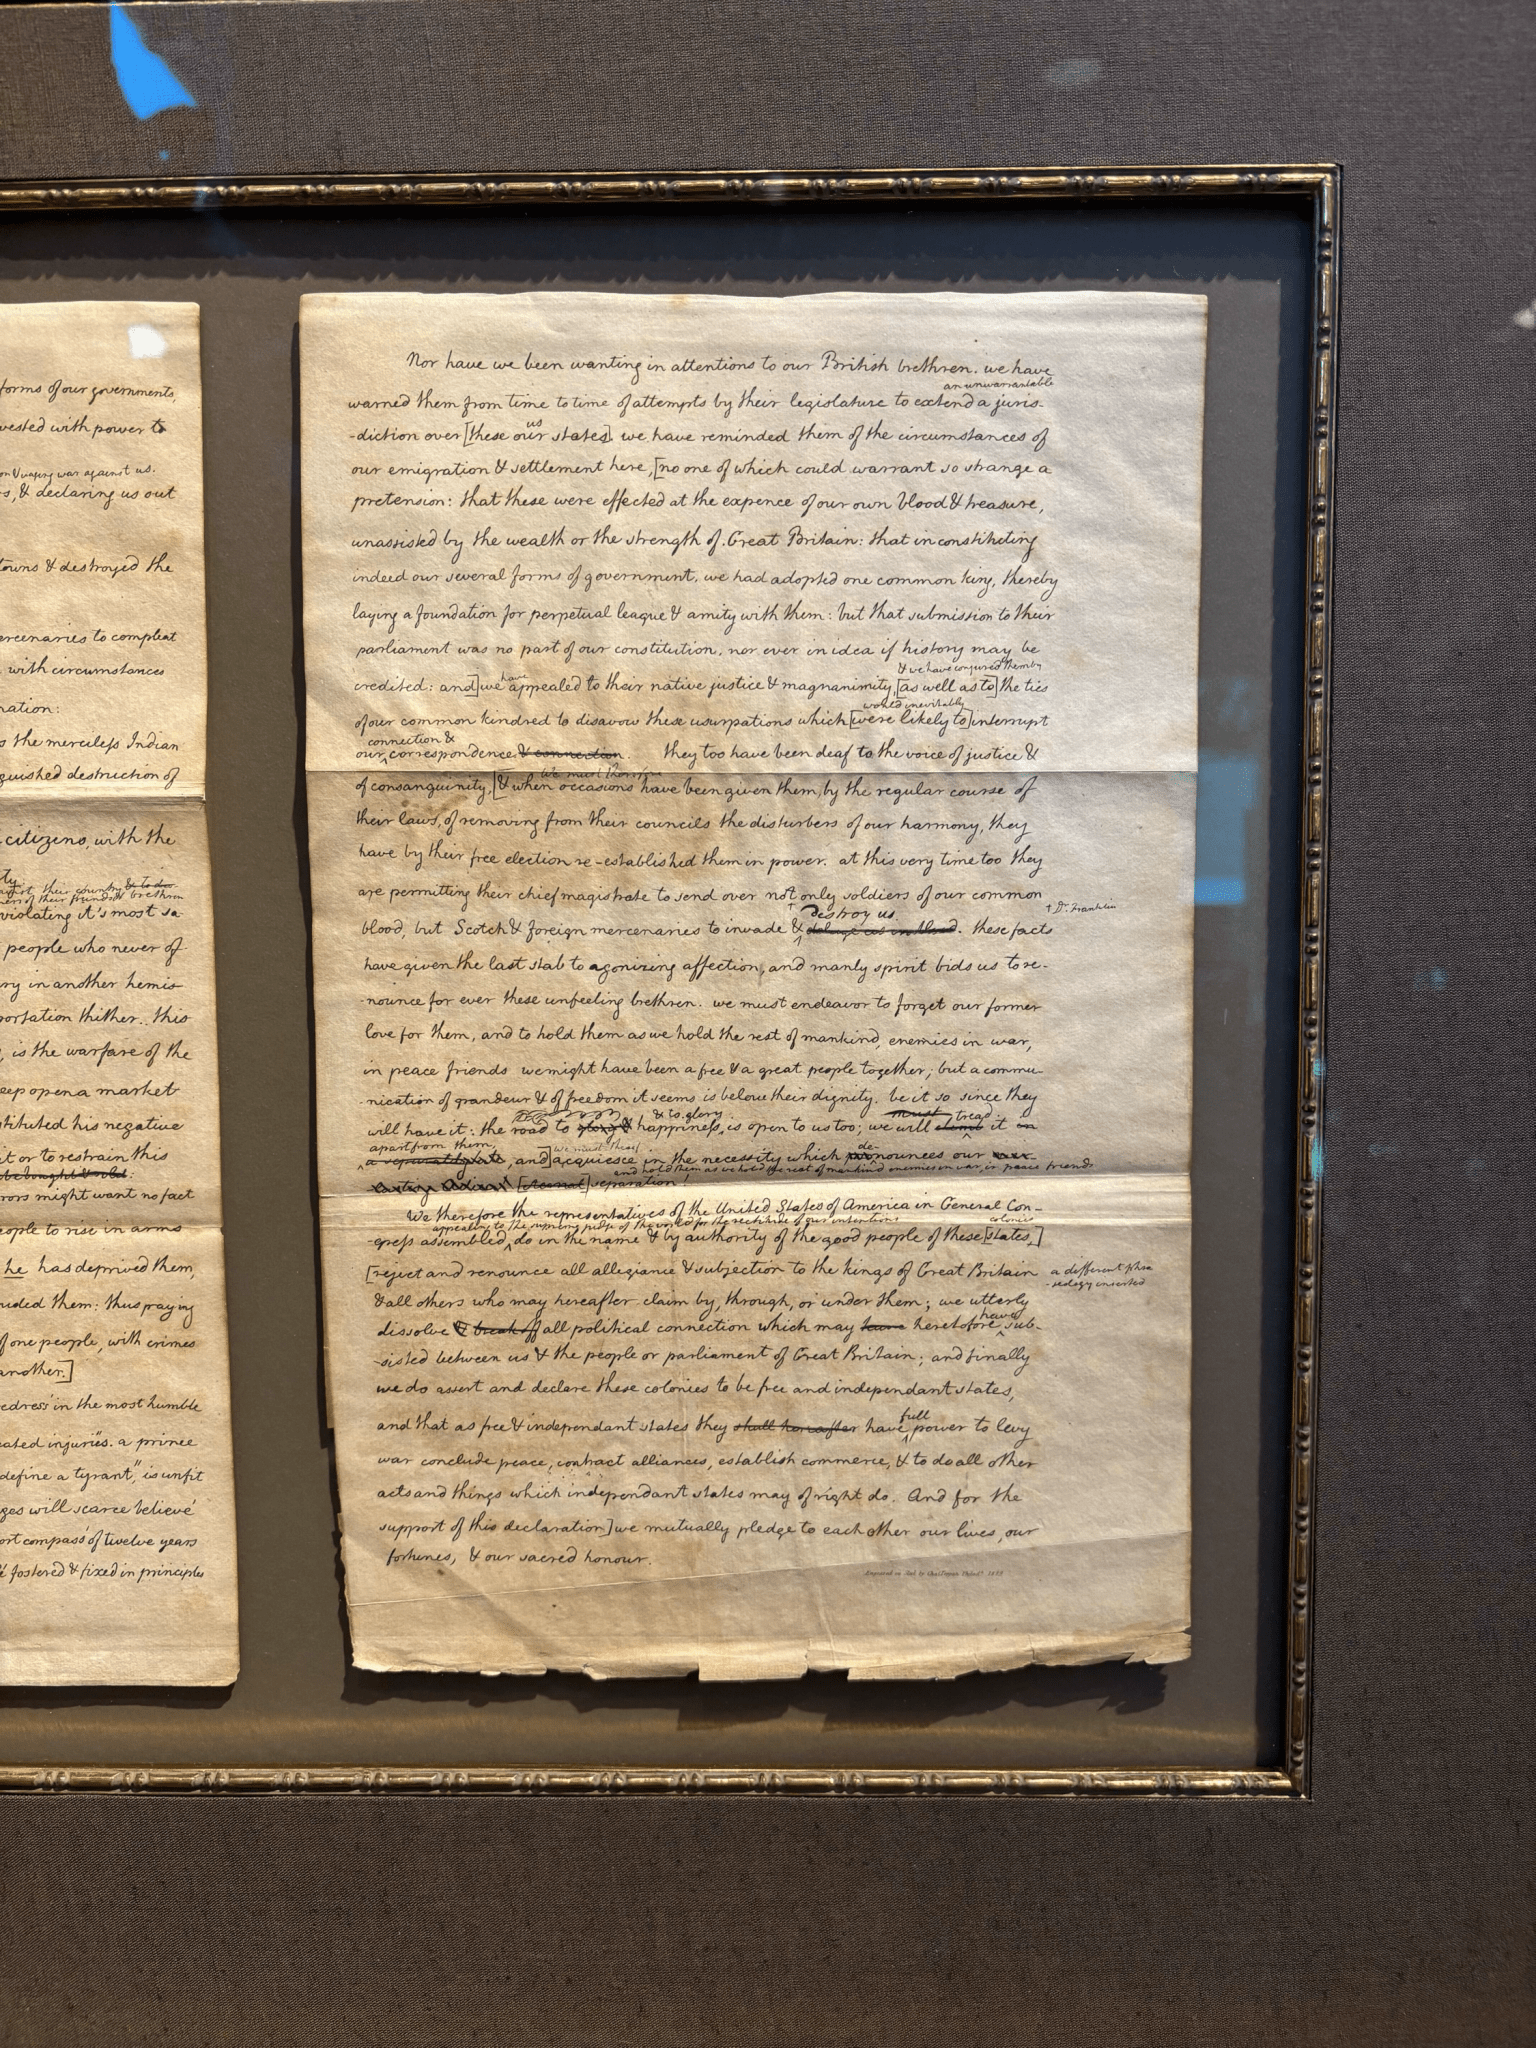 forms of our governments,
vested with power to
on & waging war against us.
s, & declaring us out
towns & destroyed the
ercenaries to compleat
with circumstances
nation:
s the merciless Indian
guished destruction of
citizens, with the
ty
against their country & to do
ners of their friends & brethren
violating it's most sa
people who never of
ry in another hemis
portation thither. this
, is the warfare of the
eep open a market
stituted his negative
it or to restrain this
be bought & sold.
rors might want no fact
eople to rise in arms
he has deprived them,
ruded them: thus paying
f one people, with crimes
another.]
redress in the most humble
eated injuries. a prince
define a tyrant," is unfit
ges will scarce believe
ort compass of twelve years
fostered & fixed in principles
Nor have we been wanting in attentions to our British brethren. we have
an unwarrantable
warned them from time to time of attempts by their legislature to extend a juris-
us
-diction over [these our states]. we have reminded them of the circumstances of
our emigration & settlement here, [no one of which could warrant so strange a
pretension: that these were effected at the expence of our own blood & treasure,
unassisted by the wealth or the strength of Great Britain: that in constituting
indeed our several forms of government, we had adopted one common king, thereby
laying a foundation for perpetual league & amity with them: but that submission to their
parliament was no part of our constitution, nor ever in idea if history may be
have & we have conjured them by
credited: and] we appealed to their native justice & magnanimity, [as well as to] the ties
would inevitably
of our common kindred to disavow these usurpations which [were likely to] interrupt
connection &
our correspondence & connection. they too have been deaf to the voice of justice &
we must therefore
of consanguinity, [& when occasions have been given them, by the regular course of
their laws, of removing from their councils the disturbers of our harmony, they
have by their free election re-established them in power. at this very time too they
are permitting their chief magistrate to send over not only soldiers of our common
destroy us † Dr. Franklin
blood, but Scotch & foreign mercenaries to invade & deluge us in blood. these facts
have given the last stab to agonizing affection, and manly spirit bids us to re-
-nounce for ever these unfeeling brethren. we must endeavor to forget our former
love for them, and to hold them as we hold the rest of mankind, enemies in war,
in peace friends we might have been a free & a great people together; but a commu-
-nication of grandeur & of freedom it seems is below their dignity. be it so since they
& to glory must tread
will have it: the road to glory & happiness, is open to us too; we will climb it in
apart from them, we must de-
a separately state, and] acquiesce in the necessity which pronounces our ever-
and hold them as we hold the rest of mankind enemies in war, in peace friends
lasting Adieu! [eternal] separation!
We therefore the representatives of the United States of America in General Con-
appealing to the supreme judge of the world for the rectitude of our intentions colonies
-gress assembled, do in the name & by authority of the good people of these [states,]
[reject and renounce all allegiance & subjection to the kings of Great Britain
a different phra
-seology inserted
& all others who may hereafter claim by, through, or under them; we utterly
have
dissolve & break off all political connection which may have heretofore sub-
-sisted between us & the people or parliament of Great Britain; and finally
we do assert and declare these colonies to be free and independant states,
full
and that as free & independant states they shall hereafter have power to levy
war conclude peace, contract alliances, establish commerce, & to do all other
acts and things which independant states may of right do. And for the
support of this declaration] we mutually pledge to each other our lives, our
fortunes, & our sacred honour.